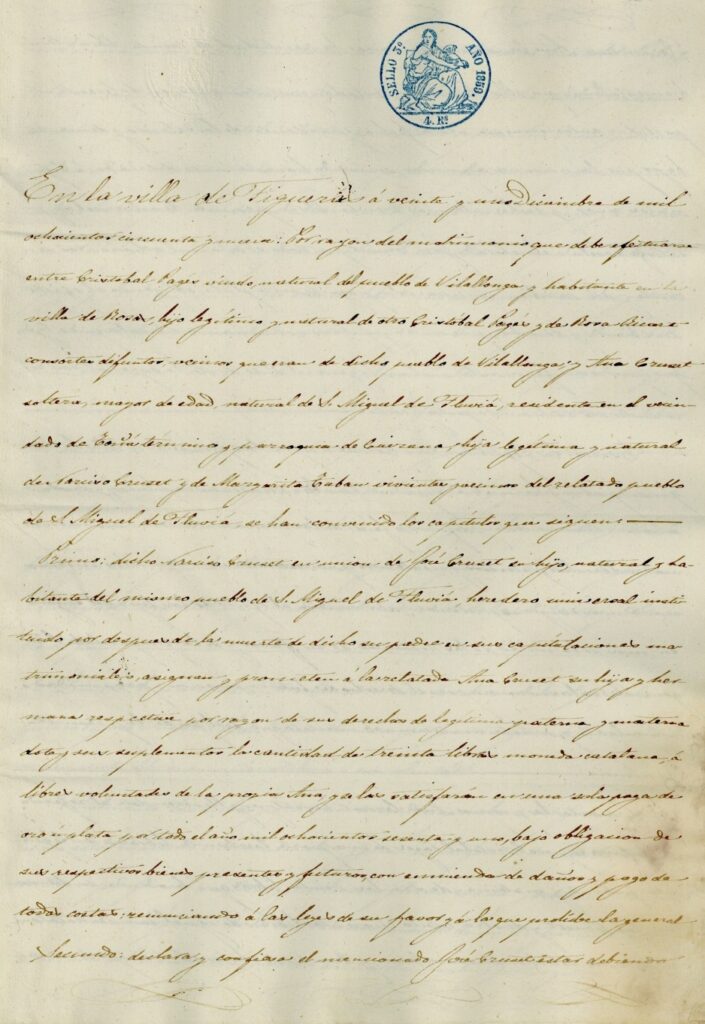 SELLO 3º AÑO 1859.
4. Rs
En la villa de Figueras á veinte y uno Diciembre de mil
ochocientos cincuenta y nueve: Por razon del matrimonio que debe efectuarse
entre Cristobal Pagés viudo, natural del pueblo de Vilallonga y habitante en la
villa de Rosas, hijo legítimo y natural de otro Cristobal Pagés y de Rosa
consortes difuntos vecinos que eran de dicho pueblo de Vilallonga; y Ana Cruset
soltera, mayor de edad, natural de S. Miguel de Fluviá, residente en el vecin-
dado de término y parroquia de hija legítima y natural
de Narciso Cruset y de Margarita vivientes vecinos del relatado pueblo
de S. Miguel de Fluviá, se han convenido los capítulos que siguen:
Primo: dicho Narciso Cruset en union de José Cruset su hijo, natural y ha-
bitante del mismo pueblo de S. Miguel de Fluviá, heredero universal insti-
tuido por despues de la muerte de dicho su padre en sus capitulaciones ma-
trimoniales, asignan y prometen á la relatada Ana Cruset su hija y her-
mana respective por razon de sus derechos de legítima paterna y materna
dote y sus suplementos la cantidad de treinta libras moneda catalana, á
libres voluntades de la propia Ana y se las satisfarán en una sola paga de
oro ó plata por todo el año mil ochocientos sesenta y uno, bajo obligacion de
sus respectivos bienes presentes y futuros, con enmienda de daños y pago de
todas costas: renunciando á las leyes de su favor y á la que prohibe la general
Segundo: declara y confiesa el mencionado José Cruset estar debiendo